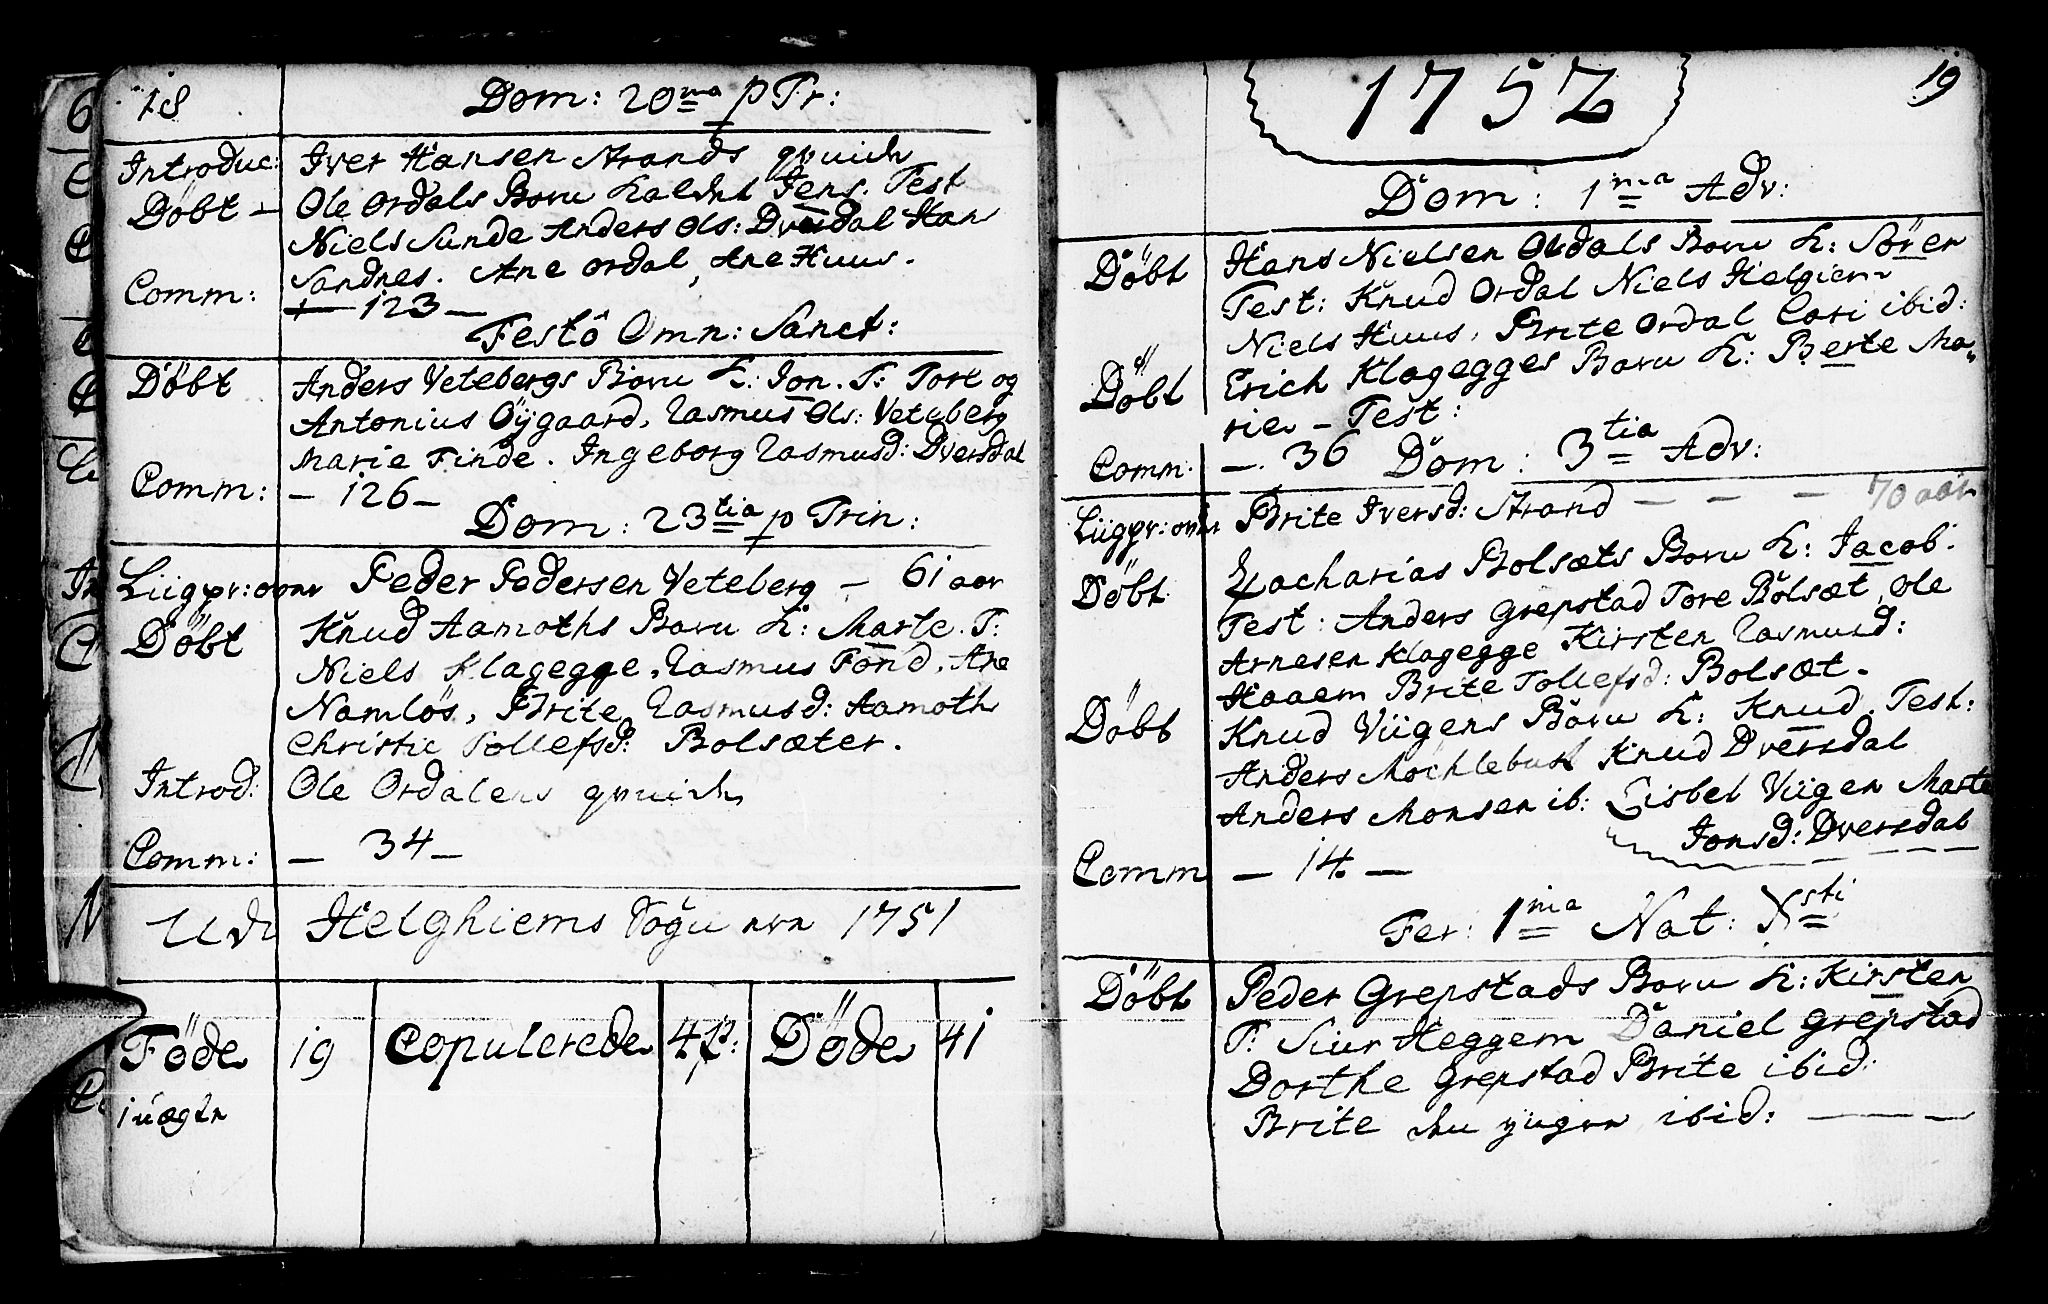 18
Dom: 20ma p Tr:
Introduc: Iver Hansen Strands qvinde
Döbt - Ole Ordals Barn kaldet Jens. Test
Niels Sunde Anders Ols: Dversdal Han
Sandnes. Ane Ordal, Ane Huus.
Comm: - 123 -
Festô Omn: Sanct:
Döbt Anders Vetebergs Barn K: Jon. T: Tort og
Antonius Öygaard, Rasmus Ols: Veteberg
Marie Finde. Ingeborg Rasmusd: Dversdal
Comm: - 126 -
Dom: 23tia p Trin:
Liigpr: over Peder Pedersen Veteberg - 61 aar
Döbt Knud Aamoths Barn K: Marte. T:
Niels Klagegge, Rasmus Fönd, Ane
Namlös, Brite Rasmusd: Aamoth
Christie Tollefsd: Bolsæter.
Introd: Ole Ordalens qvinde
Comm: - 34 -
Udi Helghiems Sogn 1751
Föde 19 Copulerede 4 p: Döde 41
1 uægte
19
1752
Dom: 1ma Adv:
Döbt Hans Nielsen Ordals Barn K: Sören
Test: Knud Ordal Niels Helgiem
Niels Huus, Brite Ordal Cari ibid:
Döbt Erich Klagegges Barn K: Berte Ma-
rie - Test:
Comm: - 36 Dom: 3tia Adv:
Liigpr: over Brite Iversd: Strand - - - 70 aar
Döbt Zacharias Bolsæts Barn K: Jacob.
Test: Anders Grepstad Tore Bolsæt, Ole
Arnesen Klagegge Kirsten Rasmusd:
Haaem Brite Tollefsd: Bolsæt.
Döbt Knud Viigens Barn K: Knud. Test:
Anders Möchlebust Knud Dversdal
Anders Monsen ib: Lisbet Viigen Marte
Jonsd: Dversdal
Comm - 14 -
Fer: 1ma Nat: Xsti
Döbt Peder Grepstads Barn K: Kirsten
T: Siur Heggem Daniel Grepstad
Dorthe Grepstad Brite ibid:
Brite den yngre ibid: - - -